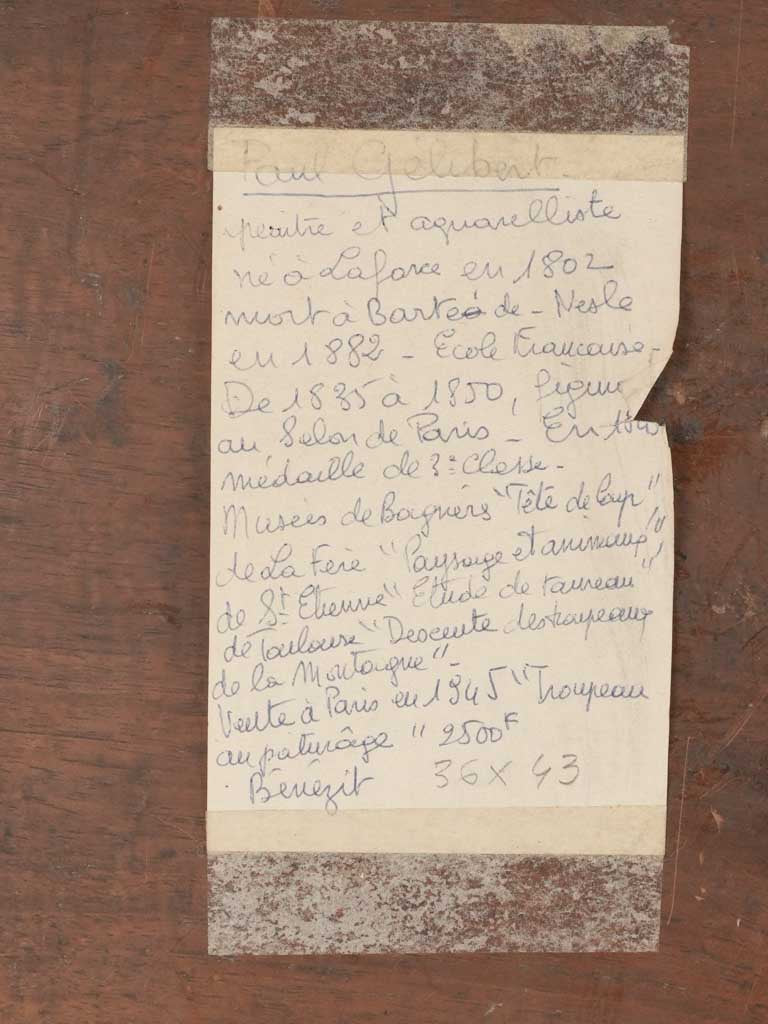 Paul Gélibert
peintre et aquarelliste
né à Laforce en 1802
mort à Barte de - Nesle
en 1882 - Ecole Francaise -
De 1835 à 1850, figure
au Salon de Paris - En
médaille de 3e Classe -
Musées de Bagnères "Tête de loup"
de La Fère "Paysage et animaux",
de St Etienne "Etude de taureau",
de Toulouse "Descente des troupeaux
de la Montagne" -
Vente à Paris en 1945 "Troupeau
au pâturâge" 2500F
Bénézit 36 x 43